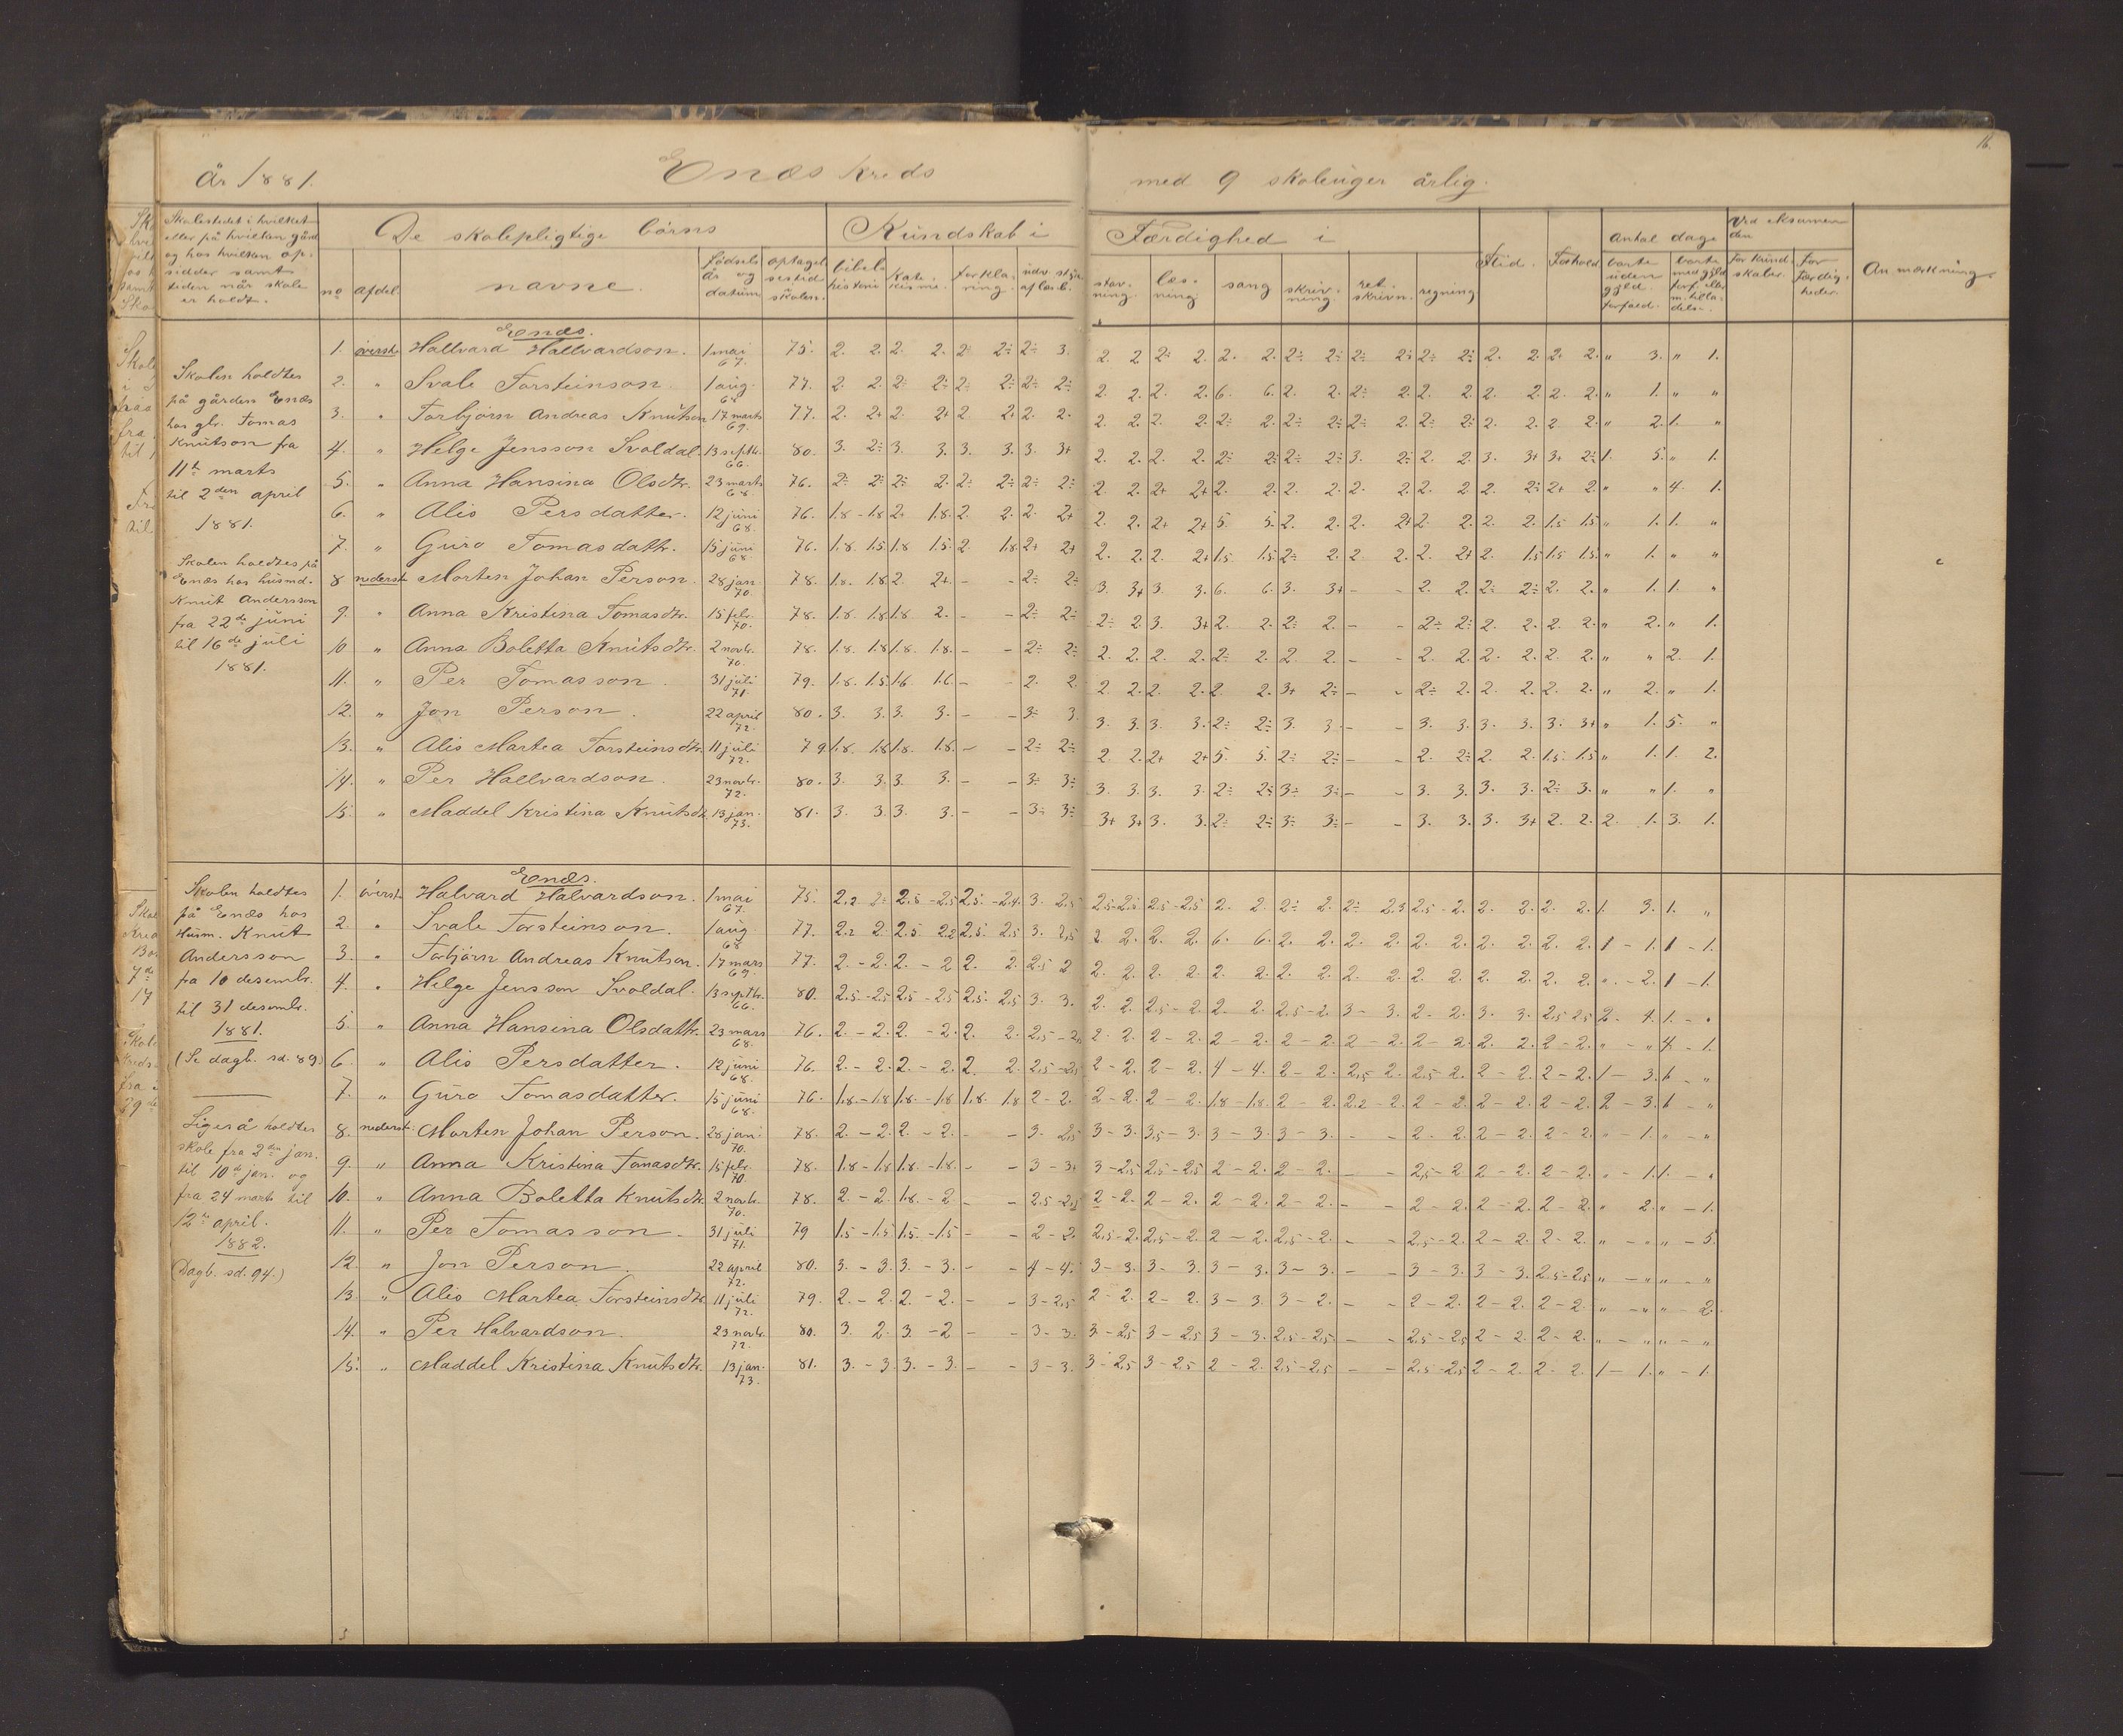 16.
År 1881. Enæs kreds med 9 skoleuger årlig.
Skolestedet i hvilket
eller på hvilken gård
og hos hvilken op-
sidder samt
tiden når skole
er holdt.
De skolepligtige börns
Kundskab i
Færdighed i
no
afdel.
navne.
fødsels
år og
datum
optagel
sestid
skolen.
bibel
historie
kate-
kisme.
forkla-
ring.
udv. stÿk
af læseb.
stav-
ning.
læs-
ning
sang
skriv-
ning
ret-
skrivn.
regning
Flid.
Forhold
antal dage
borte
uden
gyld.
forfald.
borte
med gyld.
forf. eller
m. tilla-
delse.
Ved eksamen
den
for kund-
skaber.
for
færdig-
heder.
Anmærkning
Skolen holdtes
på gården Enæs
hos gbr. Tomas
Knutson fra
11te marts
til 2den april
1881.
Skolen holdtes på
Enæs hos husmd.
Knut Andersson
fra 22de juni
til 16de juli
1881.
Enæs.
1. överst. Hallvard Hallvardson. 1 mai 67. 75. 2. 2. 2. 2. 2÷ 2÷ 2÷ 3. 2. 2 2÷ 2. 2. 2. 2÷ 2÷ 2÷ 2÷ 2÷ 2÷ 2. 2. 2. 2. " 3. " 1.
2. " Svale Torsteinson. 1 aug. 68 77. 2. 2. 2÷ 2÷ 2÷ 2÷ 2÷ 2÷ 2. 2. 2. 2. 6. 6. 2. 2. 2÷ 2. 2. 2. 2. 2. 2. 2. " 1. " "
3. " Torbjörn Andreas Knutson 17 marts 69. 77. 2. 2+ 2. 2+ 2 2+ 2. 2. 2. 2. 2. 2. 2÷ 2. 2÷ 2÷ 2÷ 2. 2÷ 2÷ 2. 2. 2 2. " 2. 1. "
4. " Helge Jensson Svoldal. 13 septbr. 66. 80. 3. 2÷ 3. 3. 3. 3. 3. 3+ 2. 2. 2. 2. 2÷ 2÷ 2÷ 2÷ 3. 2÷ 2. 2. 3. 3+ 3+ 2÷ 1. 5. " 1.
5. " Anna Hansina Olsdtr. 23 marts 68. 76. 2÷ 2÷ 2÷ 2. 2÷ 2÷ 2÷ 2÷ 2. 2. 2+ 2+ 2. 2. 2. 2. 2. 2. 2. 2 2. 2÷ 2+ 2. " " 4. 1.
6. " Alis Persdatter. 12 juni 68. 76. 1.8 - 1.8 2. 1.8. 2. 2. 2. 2+ 2. 2. 2+ 2+ 5. 5. 2. 2. 2. 2+ 2. 2. 2. 2. 1.5 1.5 " 1. 1. "
7. " Guro Tomasdattr. 15 juni 68 76. 1.8. 1.5 1.8 1.5. 2. 1.8 2+ 2+ 2. 2. 2. 2+ 1.5 1.5 2÷ 2. 2 2. 2. 2+ 2. 1.5 1.5 1.5 " 1. " "
8. nederst. Morten Johan Person. 28 jan. 70. 78. 1.8. 1.8 2. 2+ - - 2÷ 2÷ 3. 3+ 3. 3. 6. 6. 3. 3+ - - 2. 2. 2÷ 2÷ 2. 2. " 1. 1. "
9. " Anna Kristina Tomasdtr. 15 febr. 70. 78. 1.8. 1.8 1.8 2. - - 2÷ 2÷ 2÷ 2. 3. 3+ 2. 2. 2÷ 2. - - 2÷ 2÷ 2. 2. 2. 2. " 2. " 1.
10 " Anna Boletta Knutsdtr. 2 novbr. 70. 78. 1.8. 1.8 1.8. 1.8. - - 2÷ 2÷ 2. 2. 2. 2. 2÷ 2. 2 2. - - 2. 2. 2. 2. 2. 2. " " 2. 1.
11. " Per Tomasson. 31 juli 71. 79. 1.8. 1.5 1.6 1.6. - - 2. 2. 2. 2. 2. 2. 2 2. 3+ 2÷ - - 2÷ 2. 2. 2. 2. 2. " 2. " 1.
12. " Jon Person. 22 april 72. 80. 3. 3. 3. 3. - - 3÷ 3. 3. 3. 3. 3. 2÷ 2÷ 3. 3. - - 3. 3. 3. 3. 3. 3+ " 1. 5. "
13. " Alis Martea Torsteinsdtr. 11 juli 72. 79 1.8. 1.8 1.8. 1.8. - - 2÷ 2÷ 2. 2. 2+ 2+ 5. 5. 2÷ 2÷ - - 2. 2÷ 2. 2. 1.5. 1.5 " 1. 1. 2.
14. " Per Hallvardson. 23 novbr. 72. 80. 3. 3. 3. 3. - - 3÷ 3÷ 3. 3. 3. 3. 2÷ 2÷ 3÷ 3÷ - - 3. 3. 3. 3. 2÷ 3. " " 1. "
15. " Maddel Kristina Knutsdtr. 13 jan. 73. 81. 3. 3. 3. 3. - - 3÷ 3÷ 3+ 3+ 3. 3. 2÷ 2÷ 3÷ 3÷ - - 3. 3. 3. 3+ 2. 2. 2. 1. 3. 1.
Skolen holdtes
på Enæs hos
Husm. Knut
Andersson
fra 10 desembr.
til 31 desembr.
1881.
(Se dagb. sd. 89.)
Ligeså holdtes
skole fra 2den jan.
til 10de jan. og
fra 24 marts til
12te april.
1882.
(Dagb. sd. 94.)
Enæs.
1. överst. Halvard Halvardson. 1 mai 67. 75. 2.2 2÷ 2.5 - 2.5 2.5. - 2.4. 3. 2.5 2.5-2.5 2.5-2.5 2. 2. 2÷ 2. 2÷ 2.3 2.5 - 2. 2. 2. 2. 2. 1. 3. 1. "
2. " Svale Torsteinson. 1 aug. 68 77. 2.2 2. 2.5 2.2 2.5. 2.5 3. 2.5 2. 2. 2. 2. 6. 6. 2. 2. 2. 2. 2. 2. 2. 2. 2. 2. 1 - 1. 1 - 1.
3. " Torbjörn Andreas Knutson. 17 mars 69. 77. 2. - 2. 2. - 2 2. 2. 2.5 2 2. 2. 2. 2. 2. 2. 2. 2. 2. 2. 2. 2. 2. 2. 2. 2. " - 2. 1 - 1.
4. " Helge Jensson Svoldal. 13 septbr. 66. 80. 2.5-2.5 2.5 - 2.5 2.5. 2.5 3. 3. 2. 2. 2.5 - 2. 2. 2. 2.5-2. 3 - 3. 2 - 2. 3. 3. 2.5 2.5 2. 4. 1. - "
5. " Anna Hansina Olsdattr. 23 mars 68. 76. 2. - 2. 2. - 2. 2. 2. 2.5 - 2. 2. 2. 2 - 2. 2 - 2. 2 - 2. 2 - 2. 2 - 2. 2. 2. 2 - 2. " - " 4 - 1.
6. " Alis Persdatter. 12 juni 68. 76. 2. - 2. 2. - 2. 2. 2. 2.5 -2.5 2 - 2. 2 - 2. 4 - 4. 2 - 2. 2.5 - 2. 2.5 2. 2 - 2. 2 - 2. 1 - 3. - "
7. " Guro Tomasdatter. 15 juni 68. 76. 1.8. - 1.8 1.8. - 1.8 1.8. 1.8 2 - 2. 2 - 2. 2 - 2. 1.8 - 1.8. 2 - 2. 2.2 - 2. 2 - 2. 2 - 2. 2 - 2. 2 - 3. - "
8. nederst. Morten Johan Person. 28 jan. 70. 78. 2. - 2. 2. - 2. - - 3. 2.5 3 - 3. 3.5 - 3. 3 - 3. 3 - 3. - - 2 - 2. 2 - 2. 2 - 2. " - 1. " - "
9. " Anna Kristina Tomasdtr. 15 febr. 70. 78. 1.8 - 1.8 1.8. - 1.8. - - 3 - 3. 3 - 2.5 2.5 - 2.5 2 - 2. 2 - 2. - - 2.5 - 2 2 - 2. 2 - 2. " - 1. 1. - "
10. " Anna Boletta Knutsdtr. 2 novbr. 70. 78. 2. - 2. 1.8. - 2 - - 2.5 -2.5 2 - 2. 2 - 2. 2 - 2. 2 - 2. - - 2 - 2. 2 - 2. 2 - 2. " 2. " - 1.
11. " Per Tomasson. 31 juli 71. 79 1.5 - 1.5 1.5. - 1.5 - - 2 - 2. 2.5 - 2. 2.5 - 2. 2 - 2. 2.5 - 2. - - 2.5 - 2. 2 - 2. 2 - 2. " - " " - 5.
12. " Jon Person. 22 april 72. 80. 3. - 3. 3. - 3. - - 4 - 4. 3 - 3. 3 - 3. 3 - 3. 3 - 3. - - 3 - 3. 3 - 3. 2.5 -2.5 " - " " - "
13. " Alis Martea Torsteinsdtr. 11 juli 72. 79. 2. - 2. 2. - 2. - - 3 - 2.5 2 - 2. 2 - 2. 3 - 3. 3 - 2. - - 2 - 2. 2 - 2. 2 - 2. " - " " - 2.
14. " Per Halvardson. 23 novbr. 72. 80. 3. 2. 3. - 2 - - 3 - 3. 3 - 2.5 3 - 2.5 3 - 3. 2.5 - 2.5 - - 2.5 - 2.5 2 - 2. 2 - 2. " - " " - "
15. " Maddel Kristina Knutsdtr. 13 jan. 73. 81. 3. - 3. 3. - 3. - - 3 - 3. 3 - 2.5 3 - 2.5 2 - 2. 2.5 - 2.5 - - 2.5 - 2.5 2 - 2. 2 - 2. 1 - 1. " - 1.